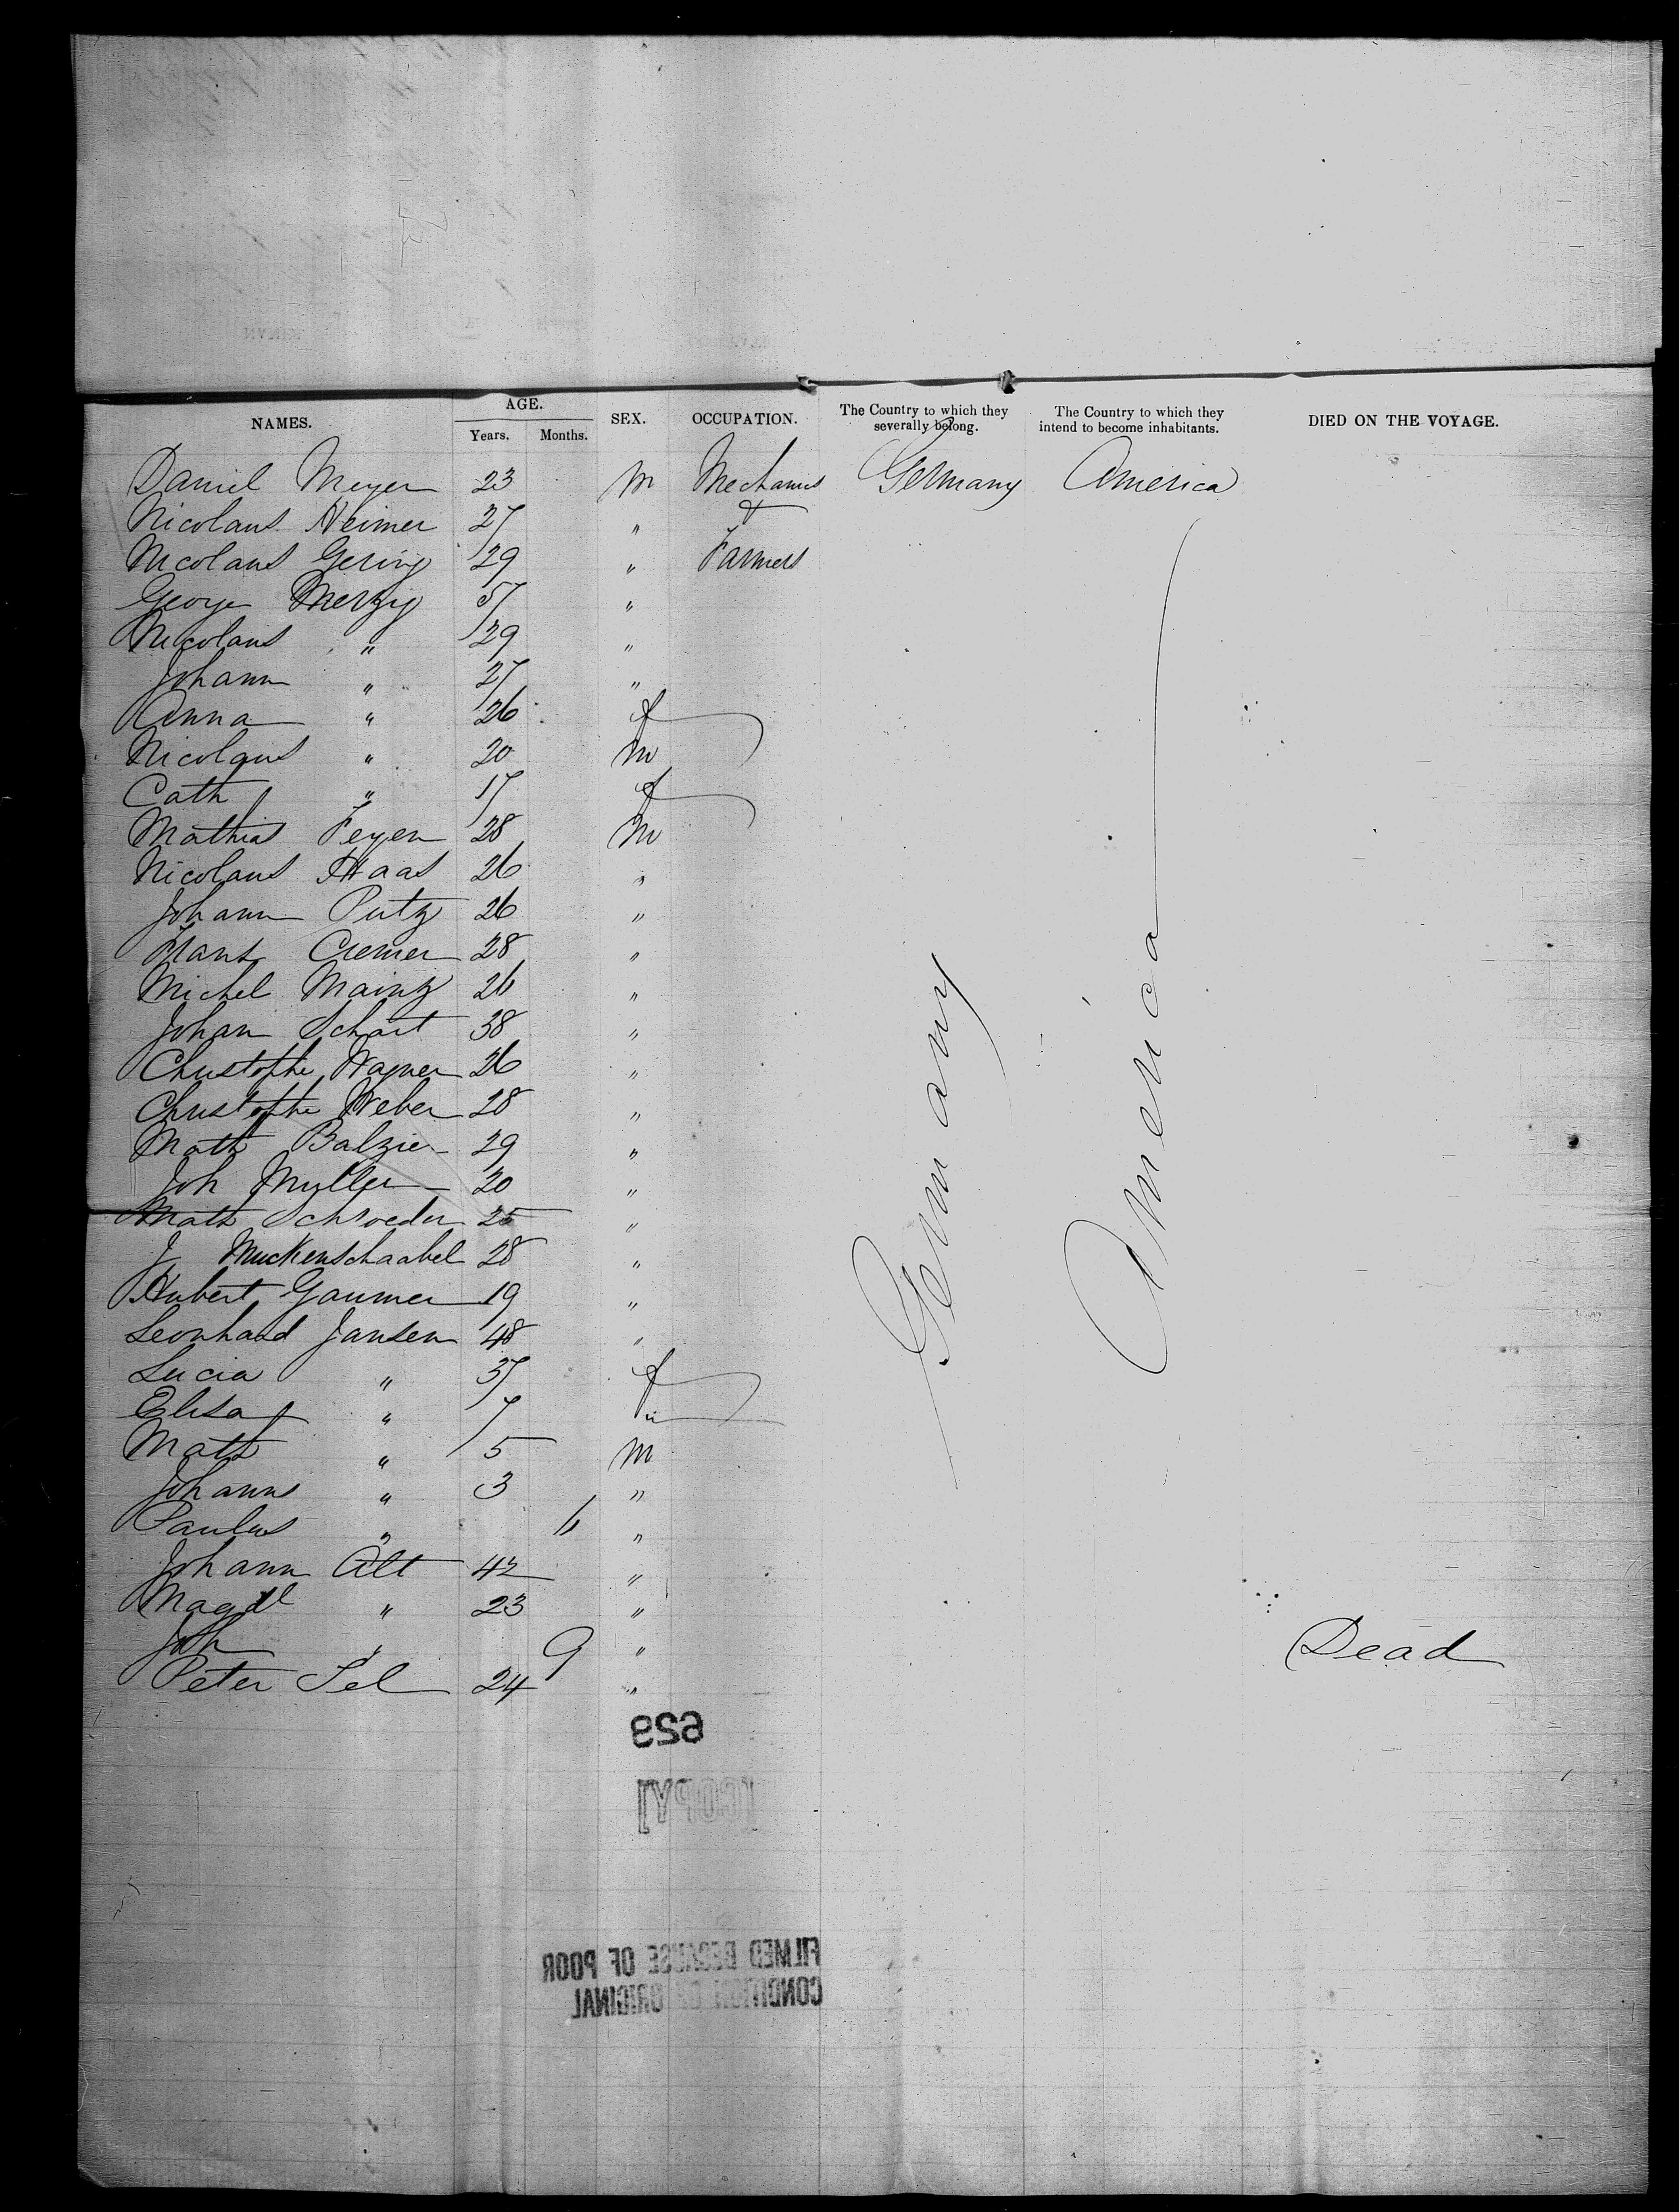 NAMES. AGE. SEX. OCCUPATION. The Country to which they severally belong. The Country to which they intend to become inhabitants. DIED ON THE VOYAGE.
Years. Months.
Daniel Meyer 23 m Mechanics Germany America
Nicolaus Heimer 27 " &
Nicolaus Gering 29 " Farmers
George Merzig 57 "
Nicolaus " 29 "
Johann " 27 "
Anna " 26 f
Nicolaus " 20 m
Cath " 17 f
Mathias Feyen 28 m
Nicolaus Haas 26 "
Johann Putz 26 "
Franz Cremer 28 "
Michel Mainz 26 "
Johan Schart 38 "
Christophe Wagner 26 "
Christophe Weber 28 "
Math Balzier 29 "
Joh Muller 20 "
Math Schroeder 25 "
J Muckenschaabel 28 "
Hubert Gaumer 19 "
Leonhard Jansen 48 "
Lucia " 37 f
Elisa " 7 "
Math " 5 m
Johann " 3 "
Paulus " 6 "
Johann Alt 42 "
Magdl " 23 "
Joh " 9 " Dead
Peter Sel 24 "
Germany
America
esa
[COPY]
FILMED BECAUSE OF POOR
CONDITION OF ORIGINAL